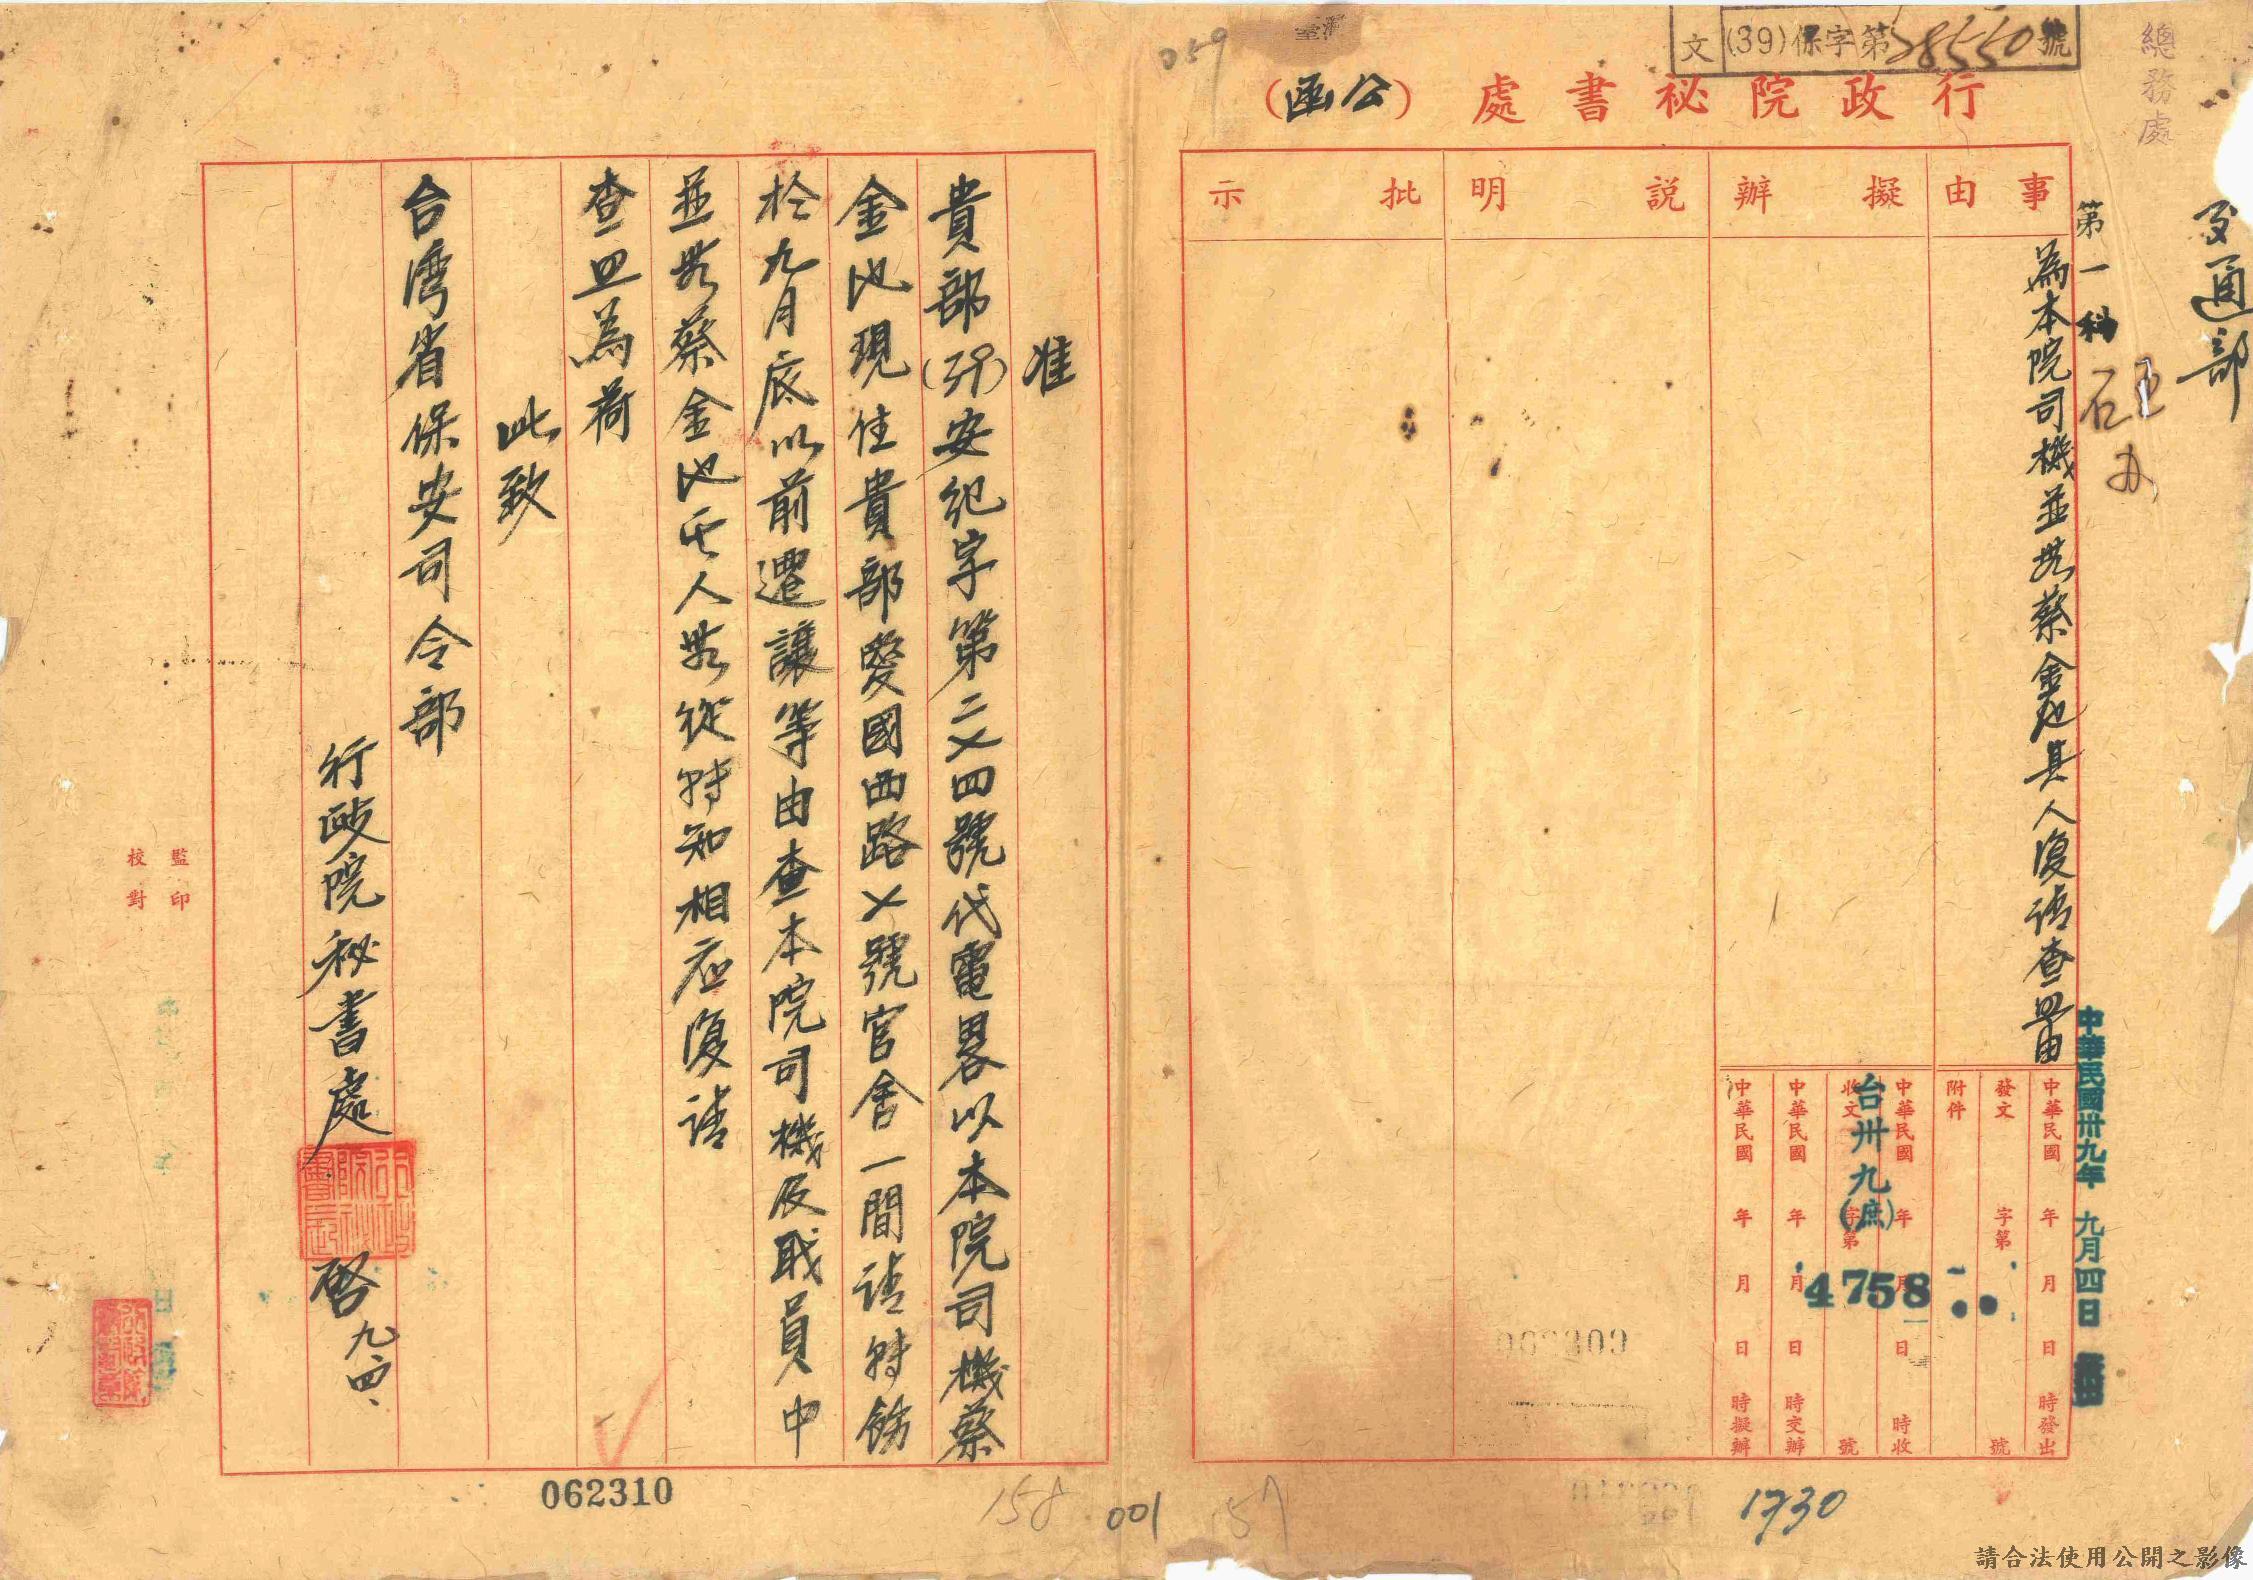 文(39)保字第28550號
總務處
059
行政院秘書處（公函）
交通部
第一科
事由
擬辦
説明
批示
為本院司機並無蔡金池其人復請查照由
中華民國卅九年九月四日
中華民國 年 月 日 時發出
發文 字第 號
附件
中華民國 年 月 日 時收
收文 字第 號
台卅九(庶)
4758
中華民國 年 月 日 時交辦
中華民國 年 月 日 時擬辦
准
貴部(39)安紀字第二〤四號代電畧以本院司機蔡
金池現住貴部愛國西路〤號官舍一間請轉飭
於九月底以前遷讓等由查本院司機及職員中
並無蔡金池其人無從轉知相應復請
查照為荷
此致
台灣省保安司令部
行政院秘書處 啓 九、四、
監印
校對
062309
062310
158
001
157
1730
請合法使用公開之影像